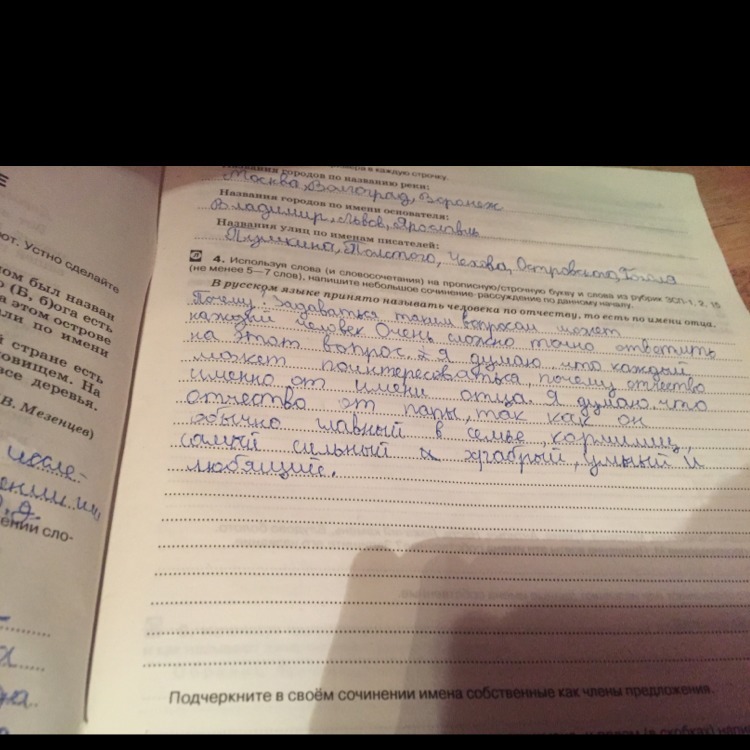 в каждую строчку.
Названия городов по названию реки:
Москва, Волгоград, Воронеж
Названия городов по имени основателя:
Владимир, Львов, Ярославль
Названия улиц по именам писателей:
Пушкина, Толстого, Чехова, Островского, Гоголя
4. Используя слова (и словосочетания) на прописную/строчную букву и слова из рубрик ЗСП-1, 2, 15
(не менее 5—7 слов), напишите небольшое сочинение-рассуждение по данному началу.
В русском языке принято называть человека по отчеству, то есть по имени отца.
Почему? Задаваться таким вопросом может
каждый человек. Очень сложно точно ответить
на этот вопрос. Я думаю, что каждый
может поинтересоваться, почему отчество
именно от имени отца. Я думаю, что
отчество от папы, так как он
обычно главный в семье, кормилец,
самый сильный и храбрый, умный и
любящий.
Подчеркните в своём сочинении имена собственные как члены предложения.
ют. Устно сделайте
ом был назван
о (Б, б)ога есть
а этом острове
али по имени
й стране есть
овищем. На
все деревья.
В. Мезенцев)
ении сло-